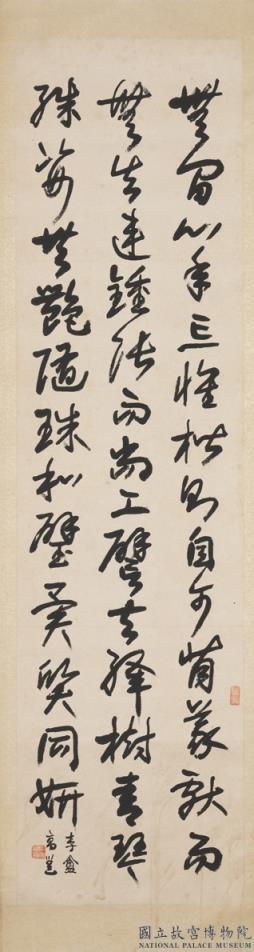 無間心手忘懷楷則自可背羲獻而
無失違鍾張而尚工譬夫絳樹青琴
殊姿共艷隨珠和璧異質同妍
李盦
高邕
國立故宮博物院
NATIONAL PALACE MUSEUM